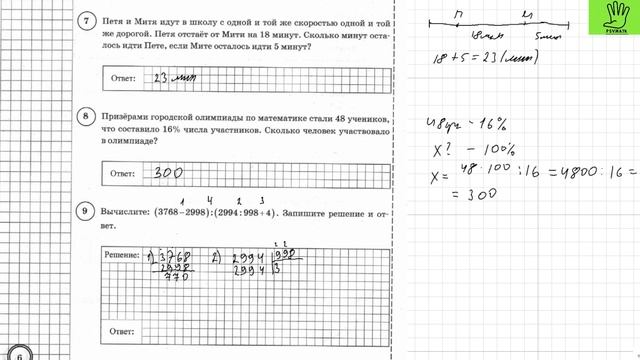 7
Петя и Митя идут в школу с одной и той же скоростью одной и той
же дорогой. Петя отстаёт от Мити на 18 минут. Сколько минут оста-
лось идти Пете, если Мите осталось идти 5 минут?
Ответ: 23 мин
8
Призёрами городской олимпиады по математике стали 48 учеников,
что составило 16% числа участников. Сколько человек участвовало
в олимпиаде?
Ответ: 300
1 4 2 3
9
Вычислите: (3768−2998):(2994:998+4). Запишите решение и от-
вет.
Решение: 1) 3768
2998
770
2) 2994 998
2994 3
Ответ:
6
П М
18 мин 5 мин
18+5=23 (мин)
48 уч − 16%
X? − 100%
X = 48·100:16=4800:16=
=300
PSVMATH